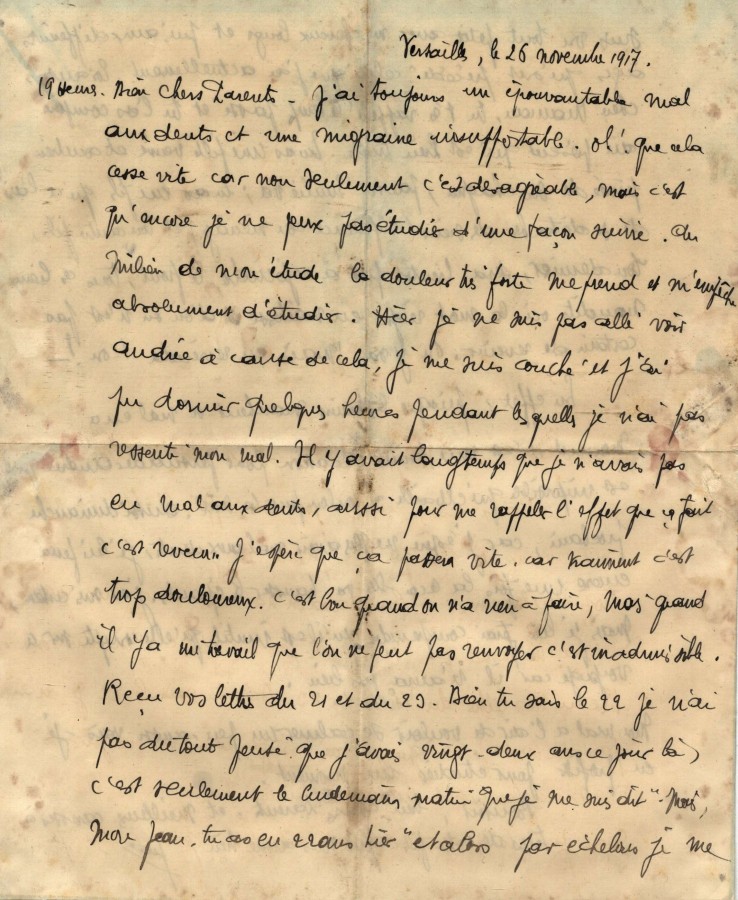 Versailles, le 26 novembre 1917.
19 heures. Bien chers Parents - J'ai toujours un épouvantable mal
aux dents et une migraine insupportable. Oh! que cela
cesse vite car non seulement c'est désagréable, mais c'est
qu'encore je ne peux pas étudier d'une façon suivie. Au
milieu de mon étude la douleur très forte me prend et m'empêche
absolument d'étudier. Hier je ne suis pas allé voir
Andrée à cause de cela, je me suis couché et j'ai
pu dormir quelques heures pendant lesquelles je n'ai pas
ressenti mon mal. Il y avait longtemps que je n'avais pas
eu mal aux dents, aussi pour me rappeler l'effet que ça fait
c'est revenu. J'espère que ça passera vite. car vraiment c'est
trop douloureux. C'est bon quand on n'a rien à faire, mais quand
il y a un travail que l'on ne peut pas renvoyer c'est inadmissible.
Reçu vos lettres du 21 et du 23. Bien tu sais le 22 je n'ai
pas du tout pensé que j'avais vingt-deux ans ce jour là,
c'est seulement le lendemain matin que je me suis dit "Mais,
mon Jean, tu as eu 22 ans hier" et alors par échelons je me